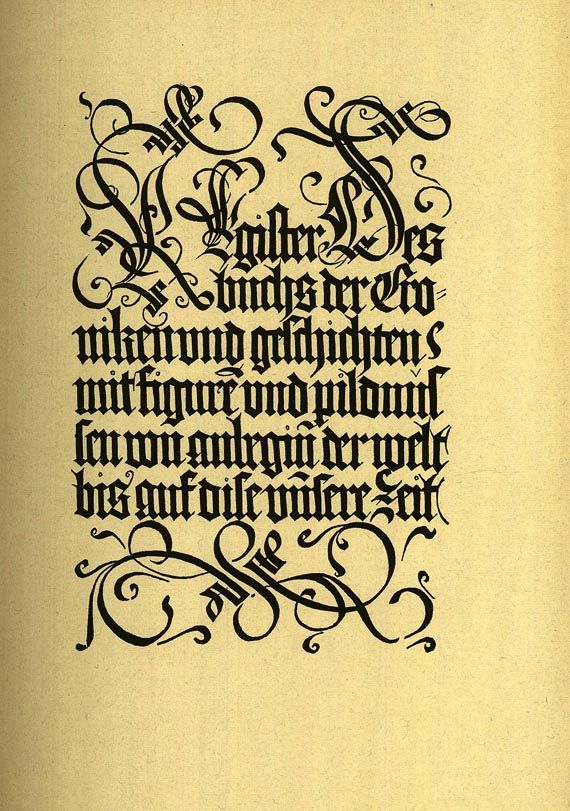 Register Des
buchs der Cro-
niken und geschichten
mit figurẽ und pildnuſ
ſen von anbegiñ der welt
bis auf diſe unſere Zeit